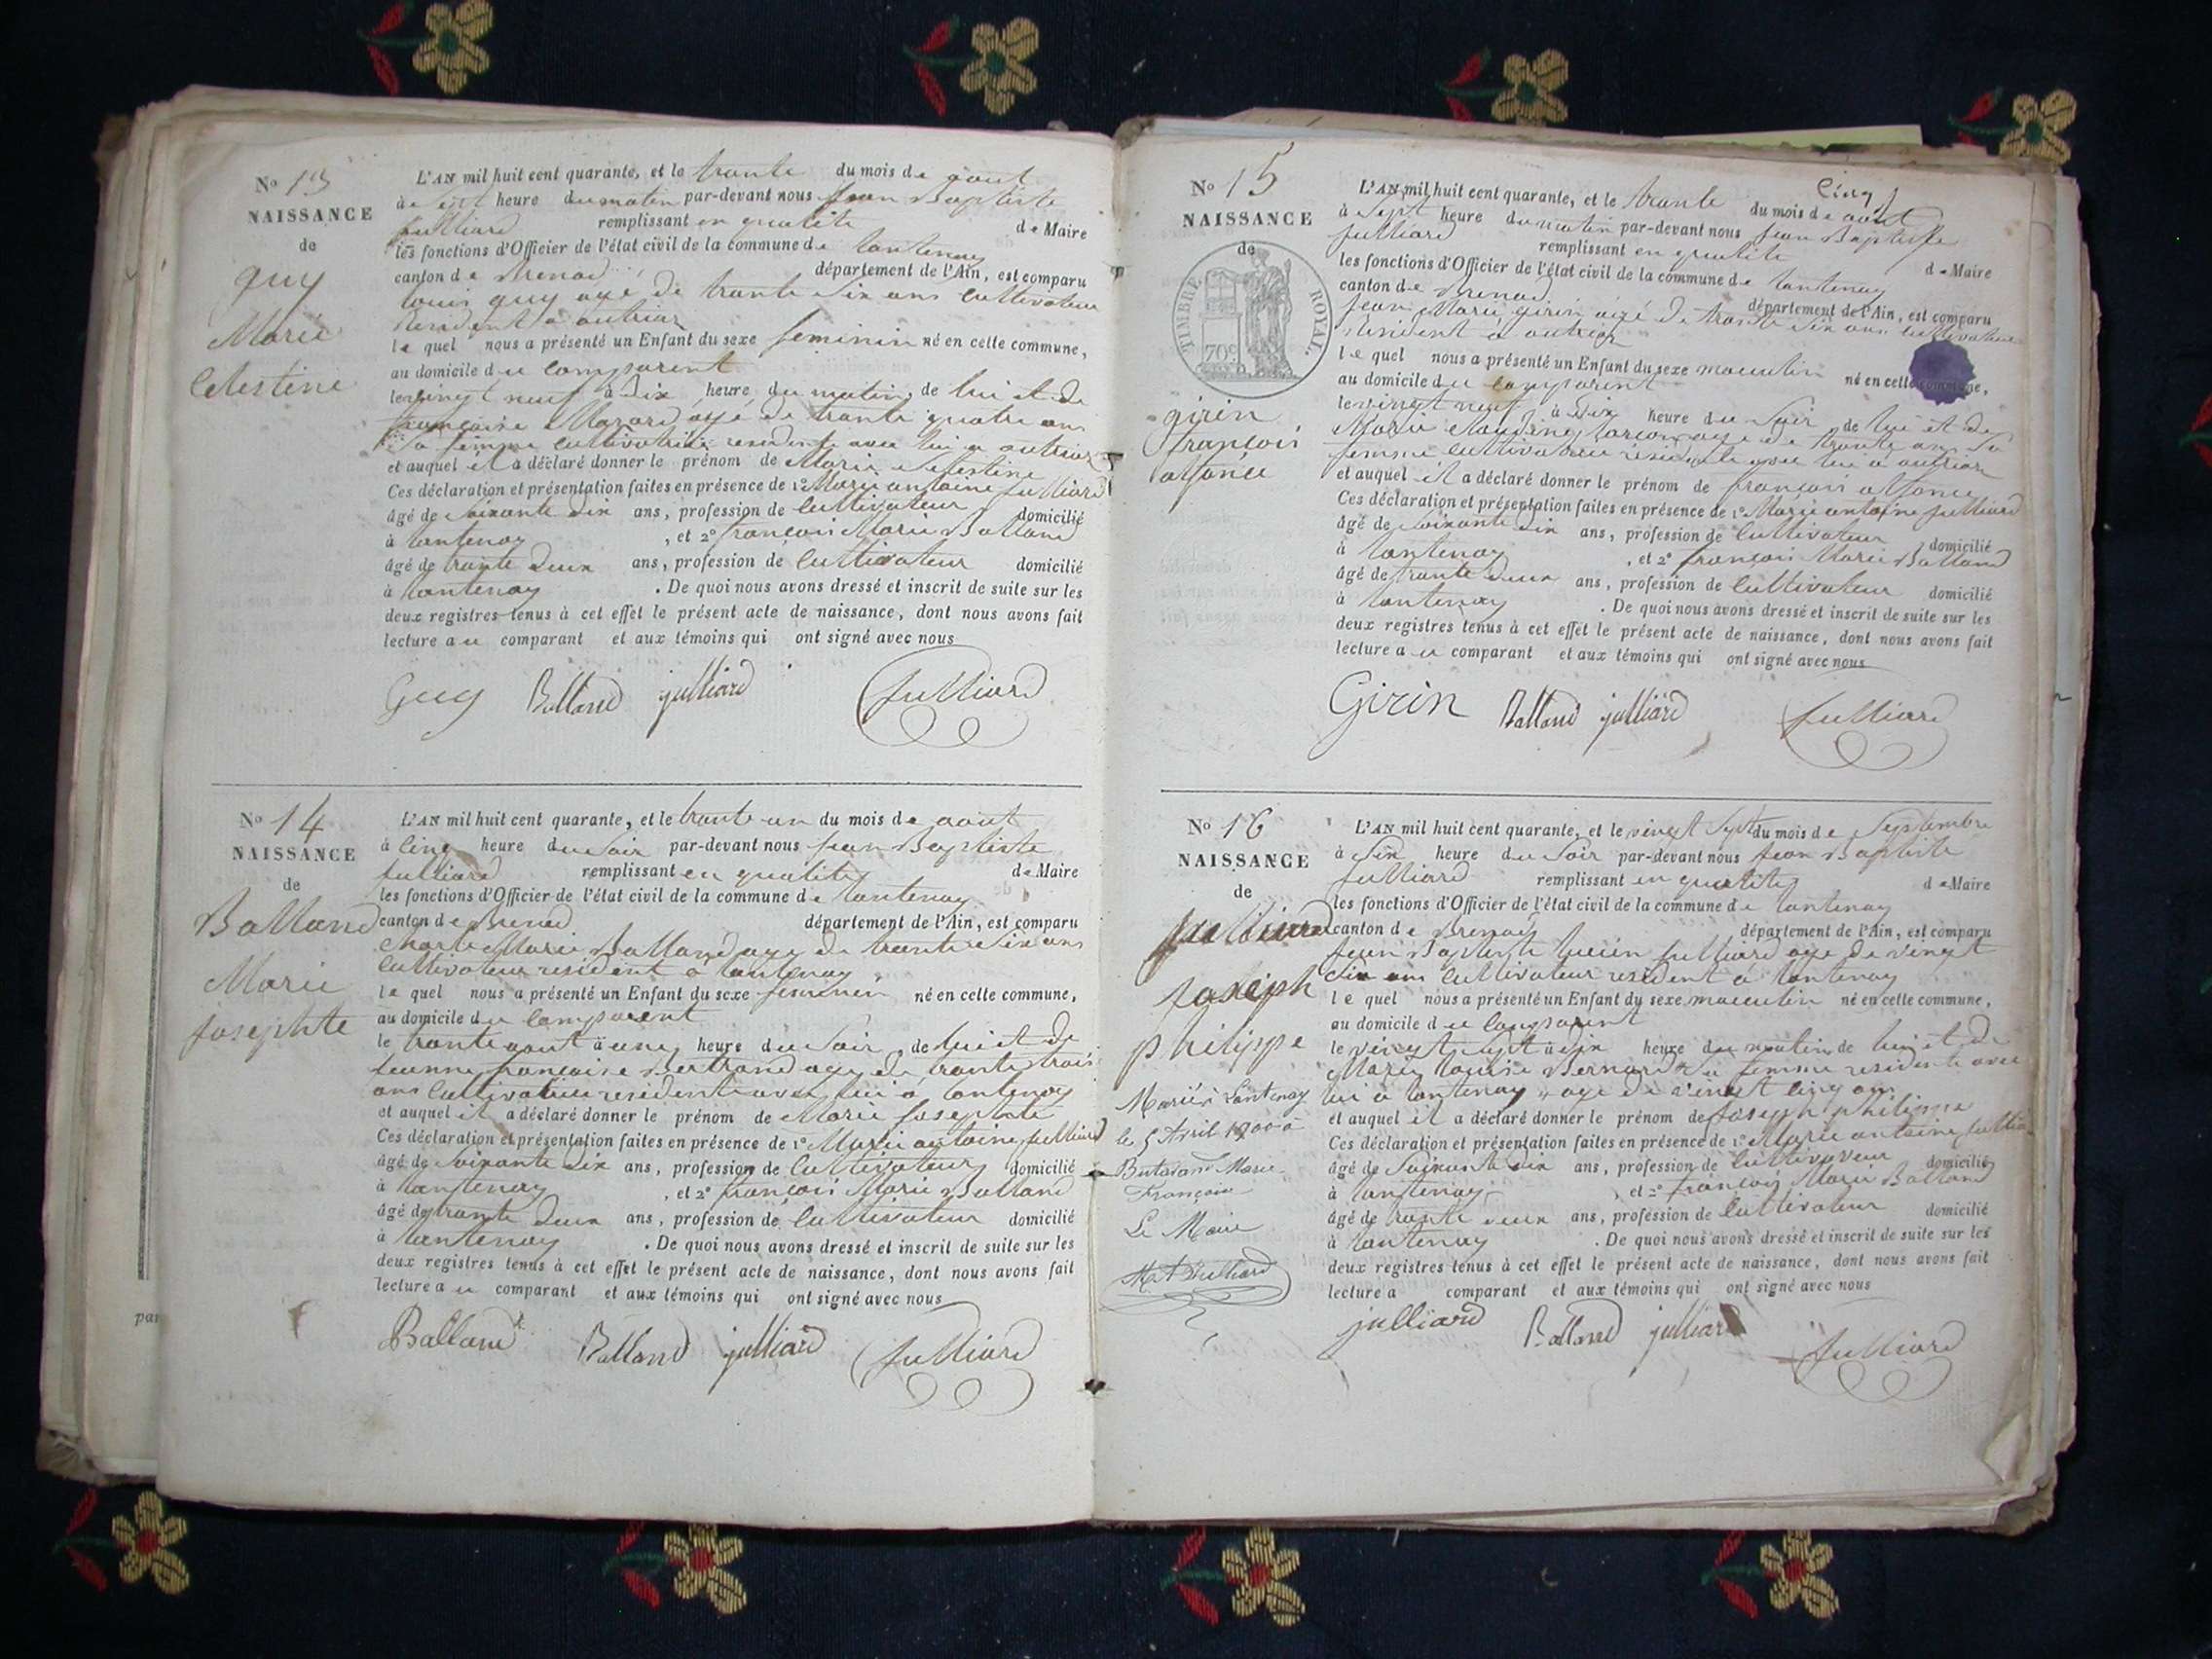 N° 13
NAISSANCE
de
guy
Marie
Celestine
L'AN mil huit cent quarante, et le trante du mois de aout
à sept heure du matin par-devant nous Jean Baptiste
Julliard remplissant en qualité de Maire
les fonctions d'Officier de l'état civil de la commune de Lantenay
canton de Brenod département de l'Ain, est comparu
Louis guy agé de trante six ans Cultivateur
Resident a outriaz
le quel nous a présenté un Enfant du sexe feminin né en cette commune,
au domicile du Comparent
le vingt neuf à dix heure du matin de lui et de
françoise agé de trante quatre ans
Sa femme Cultivatrice residente avec lui a outriaz
et auquel il a déclaré donner le prénom de Marie Selestine
Ces déclaration et présentation faites en présence de 1° Marie antoine Julliard
âgé de Soixante dix ans, profession de Cultivateur domicilié
à Lantenay , et 2° françois Marie Balland
âgé de trante deux ans, profession de Cultivateur domicilié
à Lantenay . De quoi nous avons dressé et inscrit de suite sur les
deux registres tenus à cet effet le présent acte de naissance, dont nous avons fait
lecture au comparant et aux témoins qui ont signé avec nous
Guy Balland julliard Julliard
N° 14
NAISSANCE
de
Balland
Marie
Josephte
L'AN mil huit cent quarante, et le trante un du mois de aout
à Cinq heure du Soir par-devant nous Jean Baptiste
Julliard remplissant en qualité de Maire
les fonctions d'Officier de l'état civil de la commune de Lantenay
canton de Brenod département de l'Ain, est comparu
Charle Marie Balland agé de trante six ans
Cultivateur resident a Lantenay
le quel nous a présenté un Enfant du sexe feminin né en cette commune,
au domicile du Comparent
le trante aout à une heure du Soir de lui et de
Jeanne françoise Bertrand agé de trante trois
ans Cultivatrice residente avec lui a Lantenay
et auquel il a déclaré donner le prénom de Marie Josephte
Ces déclaration et présentation faites en présence de 1° Marie antoine Julliard
âgé de Soixante dix ans, profession de Cultivateur domicilié
à Lantenay , et 2° françois Marie Balland
âgé de trante deux ans, profession de Cultivateur domicilié
à Lantenay . De quoi nous avons dressé et inscrit de suite sur les
deux registres tenus à cet effet le présent acte de naissance, dont nous avons fait
lecture au comparant et aux témoins qui ont signé avec nous
Balland Balland julliard Julliard
par
Cinq
N° 15
NAISSANCE
de
TIMBRE ROYAL.
70c
girin
françois
alfonce
L'AN mil huit cent quarante, et le trante du mois de aout
à Sept heure du matin par-devant nous Jean Baptiste
Julliard remplissant en qualité de Maire
les fonctions d'Officier de l'état civil de la commune de Lantenay
canton de Brenod département de l'Ain, est comparu
Jean Marie girin agé de trante six ans Cultivateur
resident a outriaz
le quel nous a présenté un Enfant du sexe masculin né en cette commune,
au domicile du Comparent
le vingt neuf à Dix heure du Soir de lui et de
Marie Claudine agé de trante ans Sa
femme Cultivatrice residente avec lui a outriaz
et auquel il a déclaré donner le prénom de françois alfonce
Ces déclaration et présentation faites en présence de 1° Marie antoine Julliard
âgé de Soixante dix ans, profession de Cultivateur domicilié
à Lantenay , et 2° françois Marie Balland
âgé de trante deux ans, profession de Cultivateur domicilié
à Lantenay . De quoi nous avons dressé et inscrit de suite sur les
deux registres tenus à cet effet le présent acte de naissance, dont nous avons fait
lecture au comparant et aux témoins qui ont signé avec nous
Girin Balland julliard Julliard
N° 16
NAISSANCE
de
Julliard
Joseph
philippe
Marié à Lantenay
le 5 Avril 1900 à
Bertrand Marie
Françoise
Le Maire
Julliard
L'AN mil huit cent quarante, et le vingt Sept du mois de Septembre
à Six heure du Soir par-devant nous Jean Baptiste
Julliard remplissant en qualité de Maire
les fonctions d'Officier de l'état civil de la commune de Lantenay
canton de Brenod département de l'Ain, est comparu
Jean Baptiste Julliard agé de vingt
Six ans Cultivateur resident a Lantenay
le quel nous a présenté un Enfant du sexe masculin né en cette commune,
au domicile du Comparent
le vingt Sept à dix heure du matin de lui et de
Marie Louise Bernard Sa femme residente avec
lui a Lantenay agé de vingt Cinq ans
et auquel il a déclaré donner le prénom de Joseph philippe
Ces déclaration et présentation faites en présence de 1° Marie antoine Julliard
âgé de Soixante dix ans, profession de Cultivateur domicilié
à Lantenay , et 2° françois Marie Balland
âgé de trante deux ans, profession de Cultivateur domicilié
à Lantenay . De quoi nous avons dressé et inscrit de suite sur les
deux registres tenus à cet effet le présent acte de naissance, dont nous avons fait
lecture a comparant et aux témoins qui ont signé avec nous
julliard Balland julliard Julliard